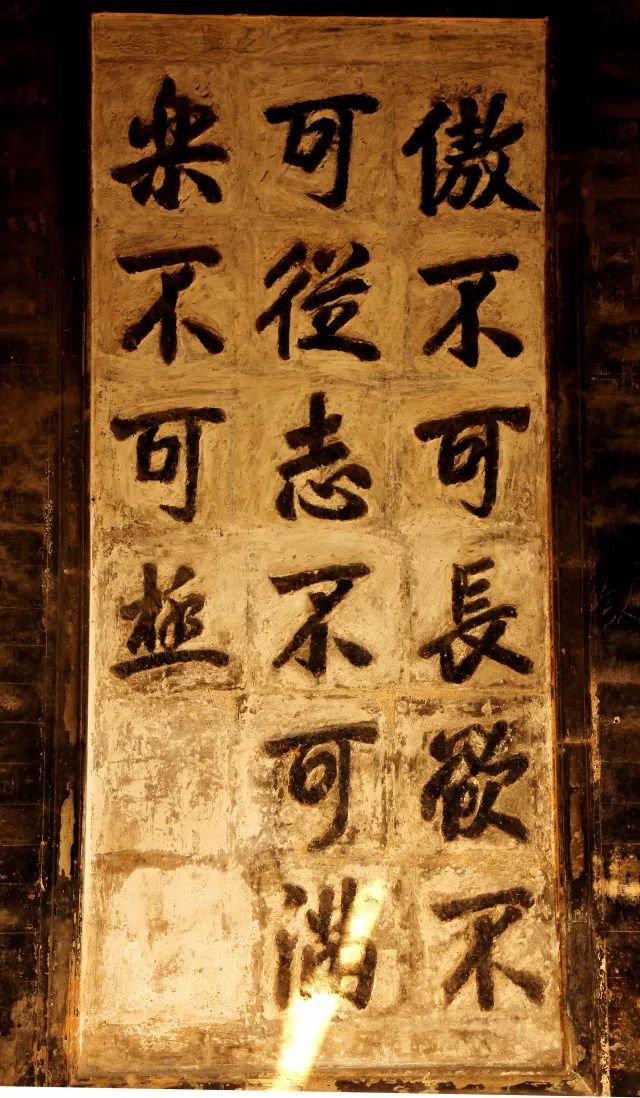 傲不可長欲不
可從志不可満
楽不可極